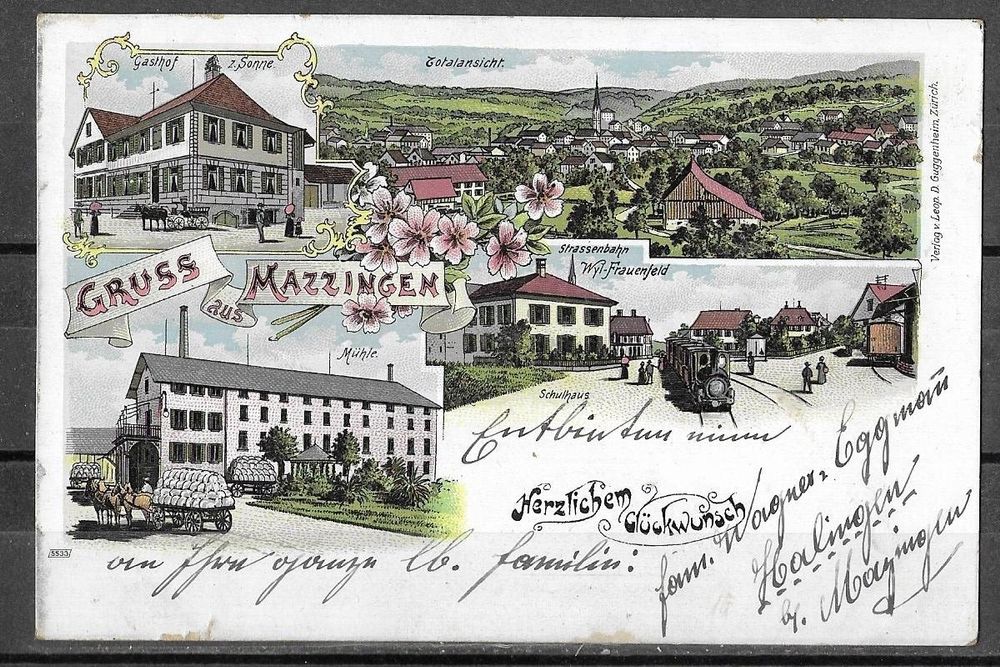 Gasthof z. Sonne.
Totalansicht.
Verlag v. Leop. D. Guggenheim, Zürich.
GRUSS
aus
MAZZINGEN
Strassenbahn
Wyl-Frauenfeld
Mühle.
Schulhaus
Entbieten einen
Herzlichem
Glückwunsch
an Ihre ganze lb. Familie:
5533
fam. Wagner-Eggmann
Halingen
b. Mazingen